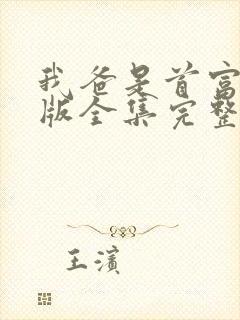 我爸是首富
版全集完整
王滨